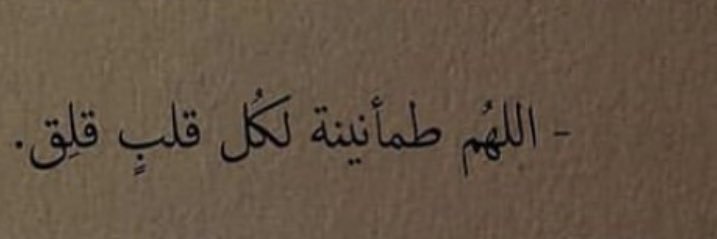 - اللهُم طمأنينة لكُل قلبٍ قلِق.